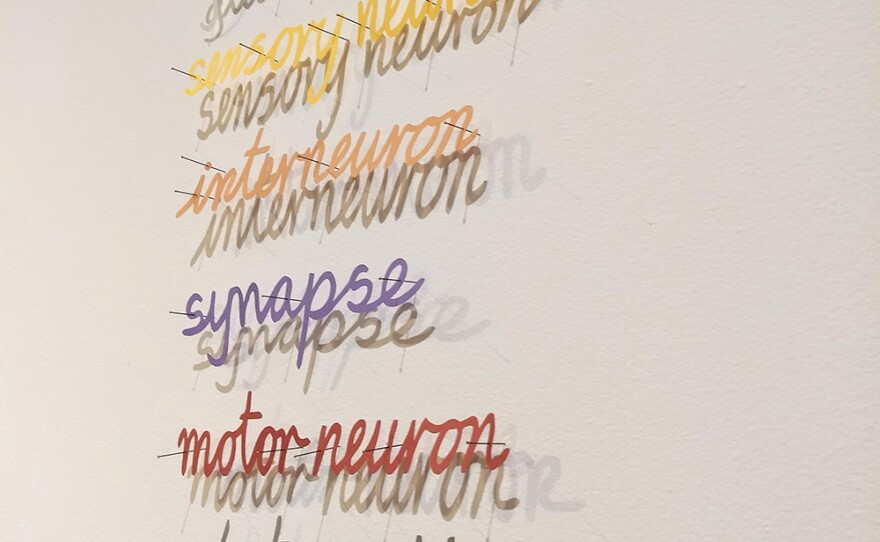 sensory neuron
interneuron
synapse
motor neuron